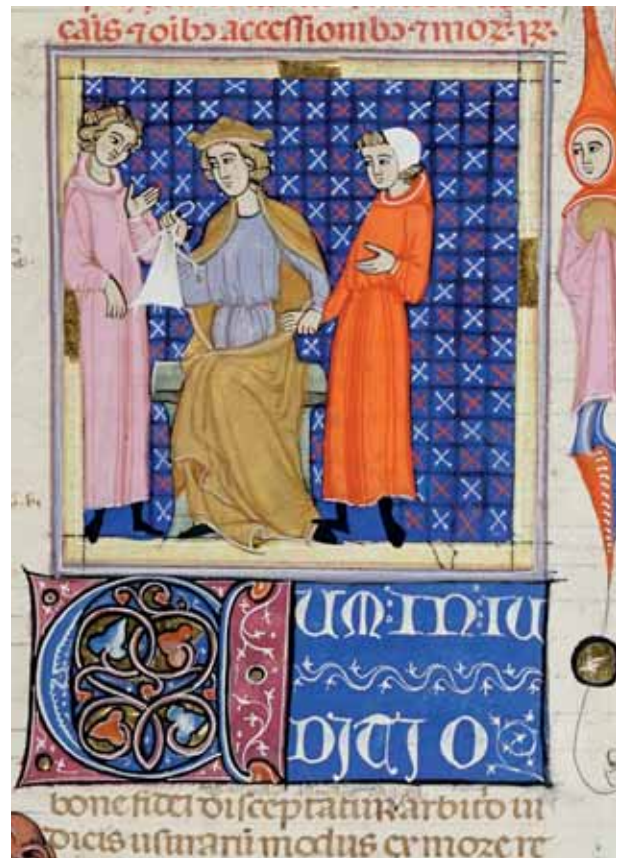 cais ⁊ oibꝰ accessionibꝰ ⁊ moꝛ· ꝶ·
CUM:IN:IU
DITIO
bone fidei disceptatur arbitrio iu
dicis usurarū modus ex more re